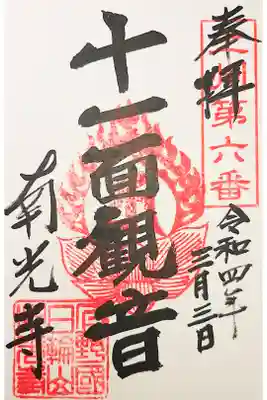 奉拝
第六番
令和四年
三月三日
十一面観音
南光寺